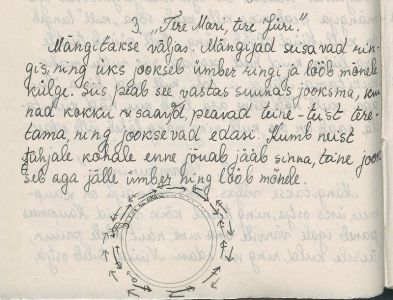 3. „Tere Mari, tere Jüri."
Mängitakse väljas. Mängijad seisavad rin-
gis, ning üks jookseb ümber ringi ja lööb mõnele
külge. Siis peab see vastas suunas jooksma, kui
nad kokku saavad, peavad teine-teist tere-
tama, ning jooksevad edasi. Kumb neist
tühjale kohale enne jõuab jääb sinna, teine jook
seb aga jälle ümber ning lööb mõnele.